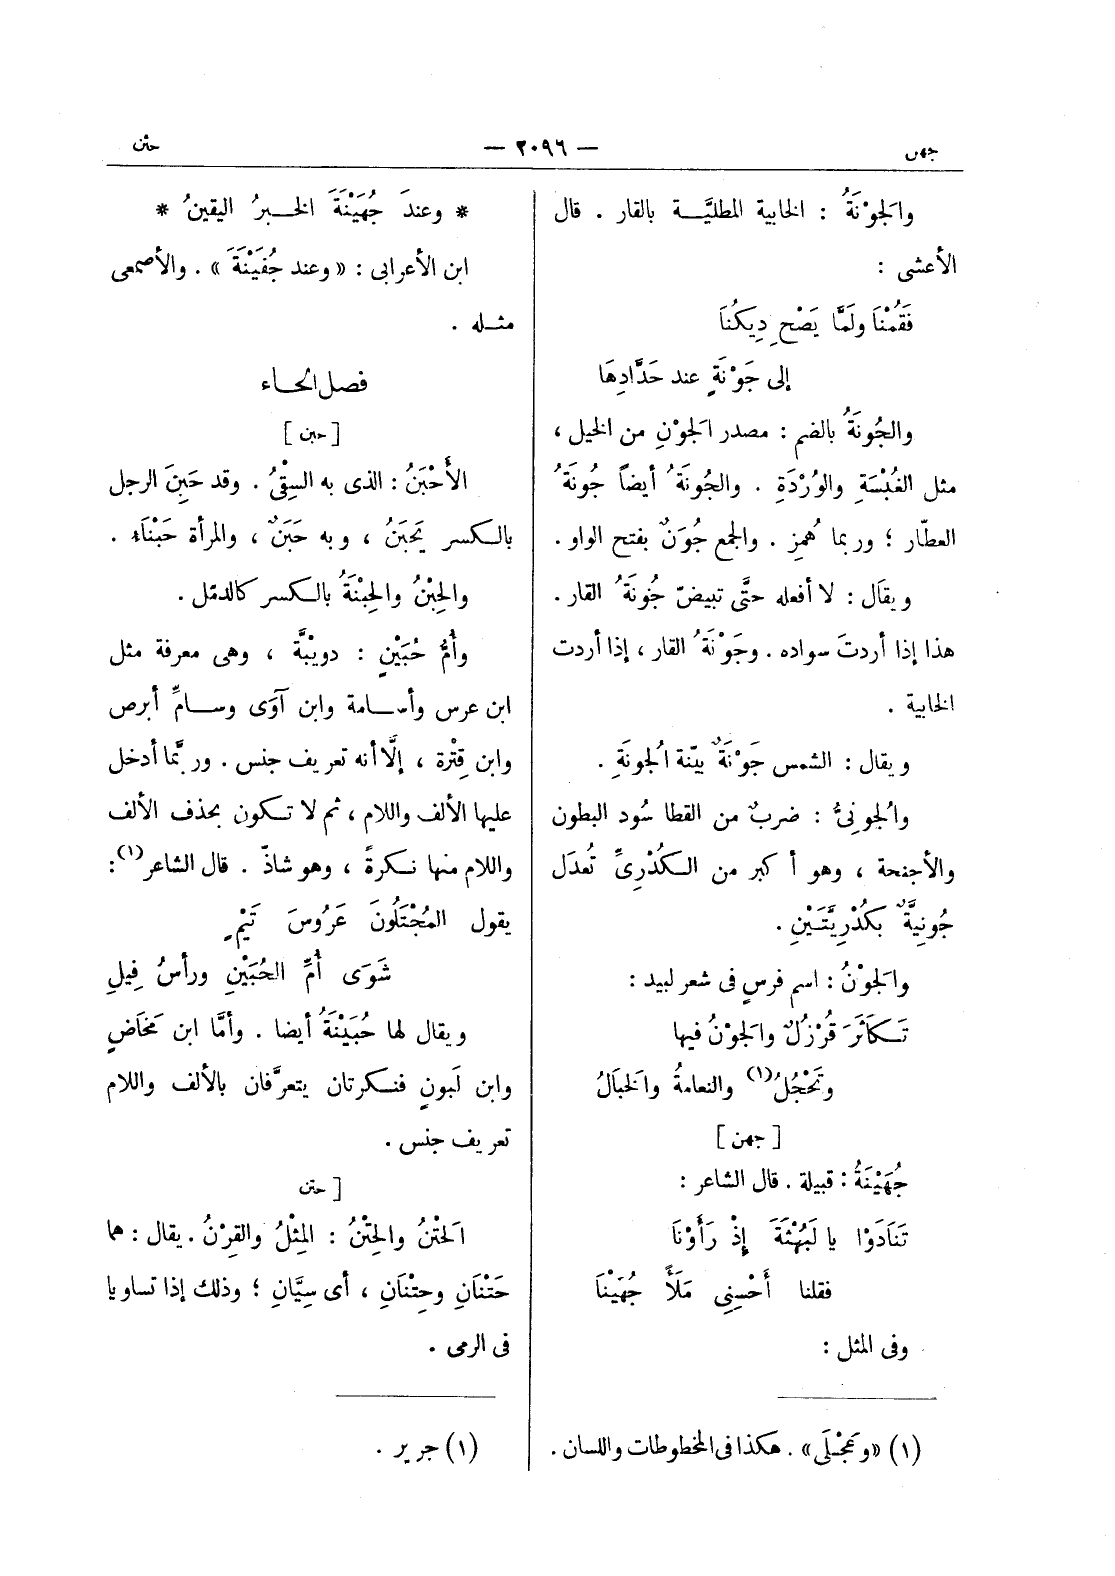 جهن
— ٢٠٩٦ —
حتن
والجَوْنَةُ : الخابية المطليَّـة بالقار . قال
الأعشى :
فَقُمْنَا ولَمَّا يَصْحِ دِيكُنَا
إلى جَوْنَةٍ عند حَدَّادِهَا
والجُونَةُ بالضم : مصدر الجَوْنِ من الخيل ،
مثل الغُبْسَةِ والوُرْدَةِ . والجُونَةُ أيضاً جُونَةُ
العطّار ؛ وربما هُمِز . والجمع جُوَنٌ بفتح الواو .
ويقَال : لا أفعله حتَّى تبيضّ جُونَةُ القار .
هذا إذا أردتَ سواده . وجَوْنَةُ القار ، إذا أردت
الخابية .
ويقال : الشمس جَوْنَةٌ بيّنة الُجونَةِ .
والُجونِىُّ : ضربٌ من القطا سُود البطون
والأجنحة ، وهو أكبر من الـكُدْرِىِّ تُعدَل
جُونِيَّةٌ بكُدْرِيَّتَيْنِ .
والجَوْنُ : اسم فرسٍ فى شعر لبيد :
تَـكَاثَرَ قُرْزُلٌ والجَوْنُ فيها
وتَحْجُلُ(١) والنعامةُ والخَبَالُ
[ جهن ]
جُهَيْنَةُ : قبيلة . قال الشاعر :
تَنَادَوْا يا لَبُهْثَةَ إذْ رَأَوْنَا
فقلنا أَحْسِنِى مَلَأً جُهَيْنَا
وفى المثل :
(١) «وعَجْلَى» . هكذا فى المخطوطات واللسان .
* وعندَ جُهَيْنَةَ الخـبرُ اليقينُ *
ابن الأعرابى : «وعند جُفَيْنَةَ» . والأصمعى
مثـله .
فصل الحـاء
[ حبن ]
الأَحْبَنُ : الذى به السِقْىُ . وقد حَبِنَ الرجل
بالـكسر يَحْبَنُ ، وبه حَبَنٌ ، والمرأة حَبْنَاء .
والحِبْنُ والحِبْنَةُ بالـكسر كالدمّل .
وأُمُّ حُبَيْنٍ : دويْبَّة ، وهى معرفة مثل
ابن عرس وأسـامة وابن آوَى وسـامِّ أبرص
وابن قِتْرة ، إلَّا أنه تعريف جنس . وربَّما أدخل
عليها الألف واللام ، ثم لا تـكون بحذف الألف
واللام منها نـكرةً ، وهو شاذّ . قال الشاعر(١) :
يقول المُجْتَلُونَ عَرُوسَ تَيْمٍ
شَوَى أُمِّ الحُبَيْنِ ورأسُ فِيلِ
ويقال لها حُبَيْنَةُ أيضا . وأمَّا ابن مَخَاضٍ
وابن لَبونٍ فنـكرتان يتعرَّفان بالألف واللام
تعريف جنس .
[ حتن
الحَتْنُ والحِتْنُ : المِثْلُ والقِرْنُ . يقال : هما
حَتْنَانِ وحِتْنَانِ ، أى سِيَّانِ ؛ وذلك إذا تساويا
فى الرمى .
(١) جرير .